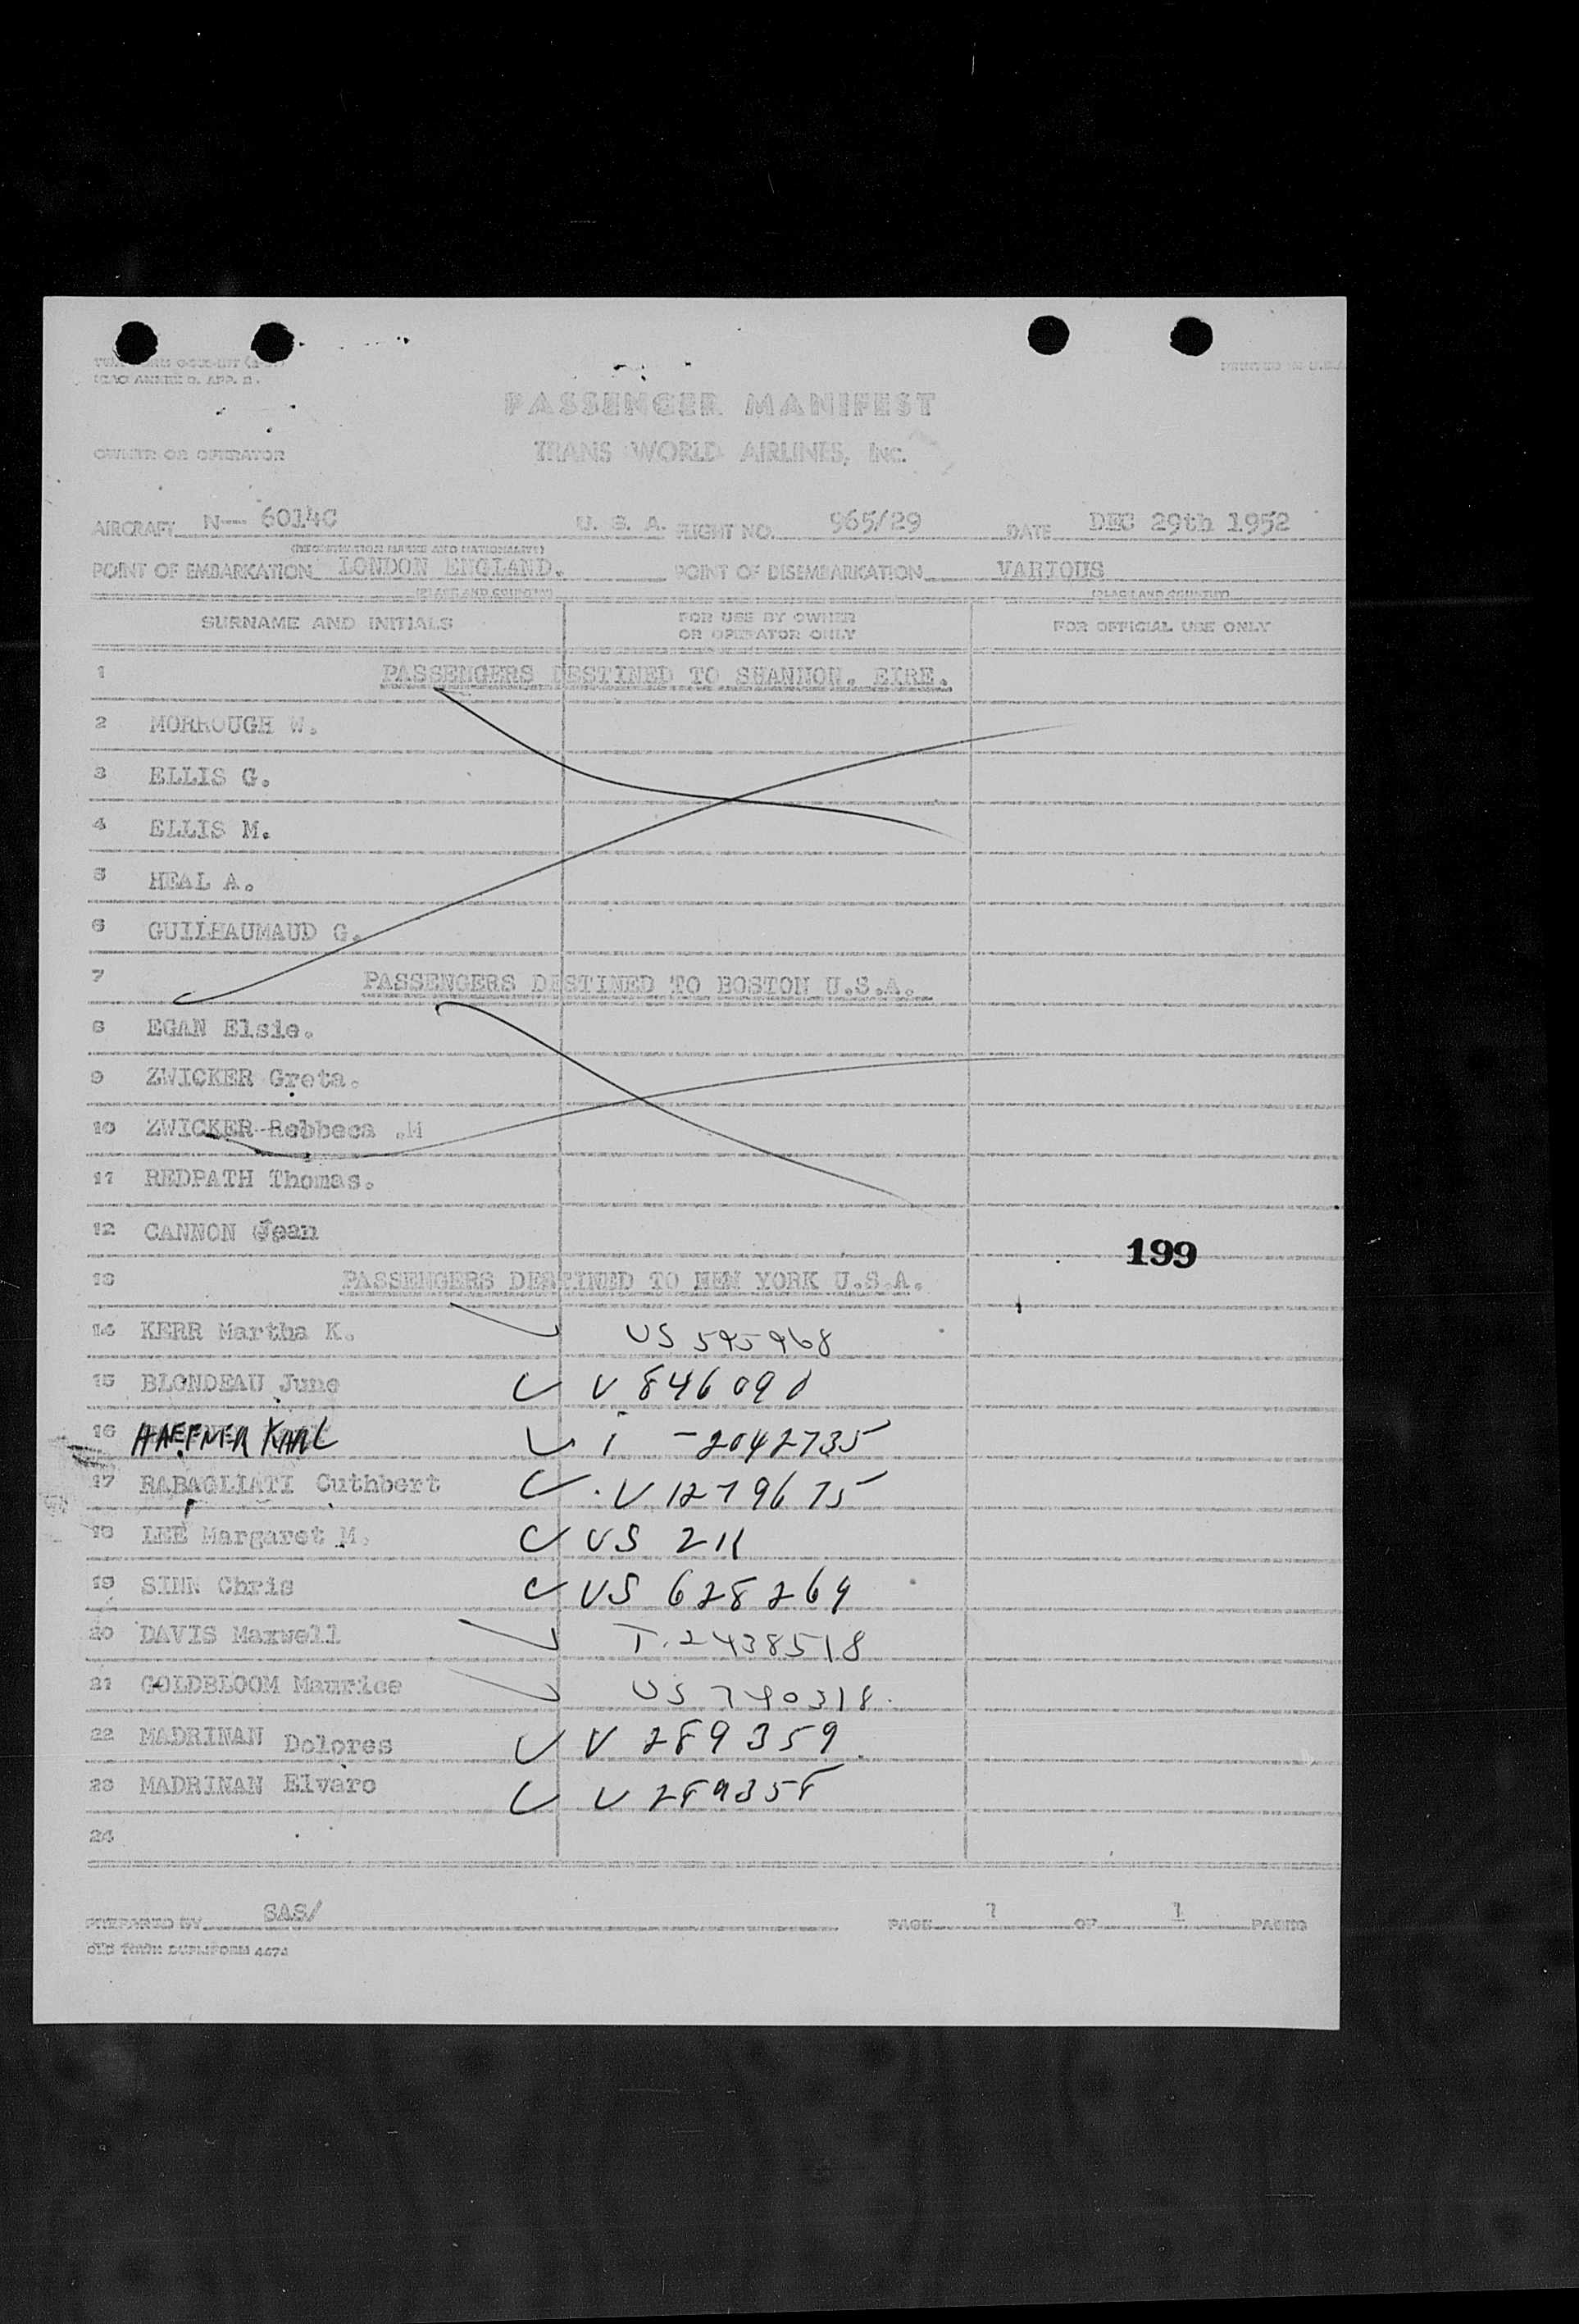 ICAO ANNEX 9. APP. B.
PRINTED IN U.S.A.
PASSENGER MANIFEST
OWNER OR OPERATOR TRANS WORLD AIRLINES, INC.
AIRCRAFT N-- 6014C U. S. A. FLIGHT NO. 965/29 DATE DEC 29th 1952
(REGISTRATION MARKS AND NATIONALITY)
POINT OF EMBARKATION LONDON ENGLAND. POINT OF DISEMBARKATION VARIOUS
(PLACE AND COUNTRY) (PLACE AND COUNTRY)
SURNAME AND INITIALS FOR USE BY OWNER OR OPERATOR ONLY FOR OFFICIAL USE ONLY
1 PASSENGERS DESTINED TO SHANNON. EIRE.
2 MORROUGH W.
3 ELLIS G.
4 ELLIS M.
5 HEAL A.
6 GUILHAUMAUD G.
7 PASSENGERS DESTINED TO BOSTON U.S.A.
8 EGAN Elsie.
9 ZWICKER Greta.
10 ZWICKER Rebbeca .M
11 REDPATH Thomas.
12 CANNON Jean
199
13 PASSENGERS DESTINED TO NEW YORK U.S.A.
14 KERR Martha K. US 595968
15 BLONDEAU June V 846090
16 HAEFNER KARL I -2042735
17 RABAGLIATI Cuthbert V 1279675
18 LEE Margaret M. US 211
19 SINN Chris US 628269
20 DAVIS Maxwell T. 2438518
21 GOLDBLOOM Maurice US 740318.
22 MADRINAN Dolores V 289359
23 MADRINAN Elvaro V 289358
24
PREPARED BY SAS/ PAGE 1 OF 1 PAGES